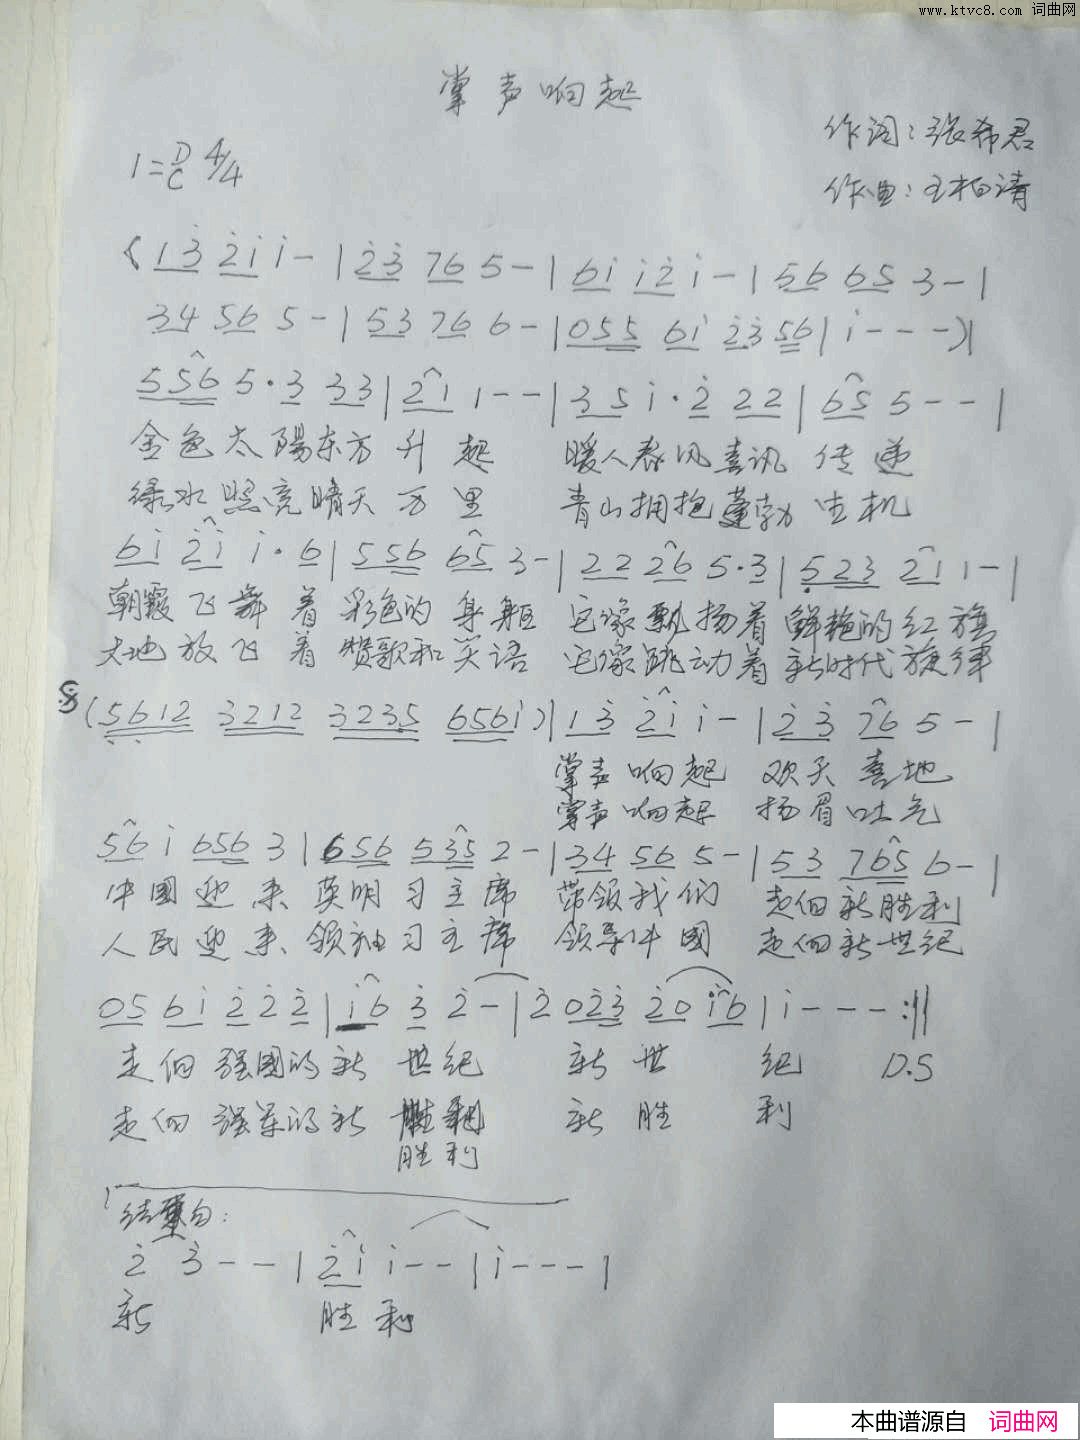 www.ktvc8.com 词曲网
掌声响起
作词：张希君
1=D/C 4/4
作曲：王柏清
(1 3̇ 2̇ i i - | 2̇ 3̇ 7 6 5 - | 6 i i 2̇ i - | 5 6 6 5 3 - |
3 4 5 6 5 - | 5 3 7 6 6 - | 0 5 5 6 i 2̇ 3̇ 5 6 | i - - -)|
5 5 6 5 · 3 3 3 | 2 1 1 - - | 3 5 i · 2̇ 2 2 | 6 5 5 - - |
金色太陽东方升起 暖人春风喜讯传递
绿水照亮晴天万里 青山拥抱蓬勃生机
6 i 2̇ i i · 6 | 5 5 6 6 5 3 - | 2 2 2 6 5 · 3 | 5̣ 2 3 2 1 1 - |
朝霞飞舞着彩色的身躯 它像飘扬着鲜艳的红旗
大地放飞着赞歌和笑语 它像跳动着新时代旋律
(5̣ 6̣ 1 2 3 2 1 2 3 2 3 5 6 5 6 i)| 1 3̇ 2̇ i i - | 2̇ 3̇ 7 6 5 - |
掌声响起 欢天喜地
掌声响起 扬眉吐气
5 6 i 6 5 6 3 | 6 5 6 5 3 5 2 - | 3 4 5 6 5 - | 5 3 7 6 5 6 - |
中國迎来英明习主席 带领我们 走向新胜利
人民迎来领袖习主席 领导中國 走向新世纪
0 5 6 i 2̇ 2̇ 2̇ | i 6 3̇ 2̇ - | 2̇ 0 2̇ 3̇ 2̇ 0 i 6 | i - - - :||
走向强國的新世纪 新世纪 D.S
走向强军的新胜利 新胜利
胜利
结束句：
2̇ 3̇ - - | 2̇ i i - - | i - - - |
新 胜利
本曲谱源自 词曲网